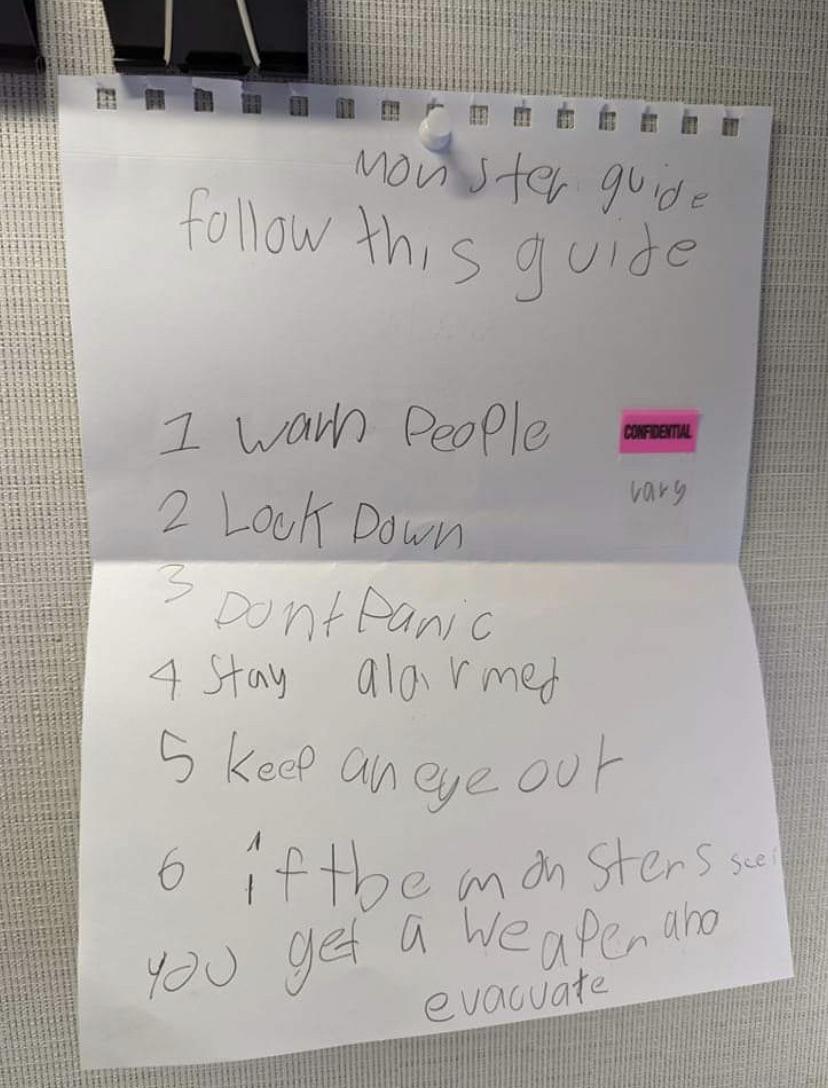 Monster guide
follow this guide
1 warn People
CONFIDENTIAL
vary
2 Lock Down
3 Dont Panic
4 Stay alarmed
5 keep an eye out
6 if the monsters see
you get a weapen and
evacuate